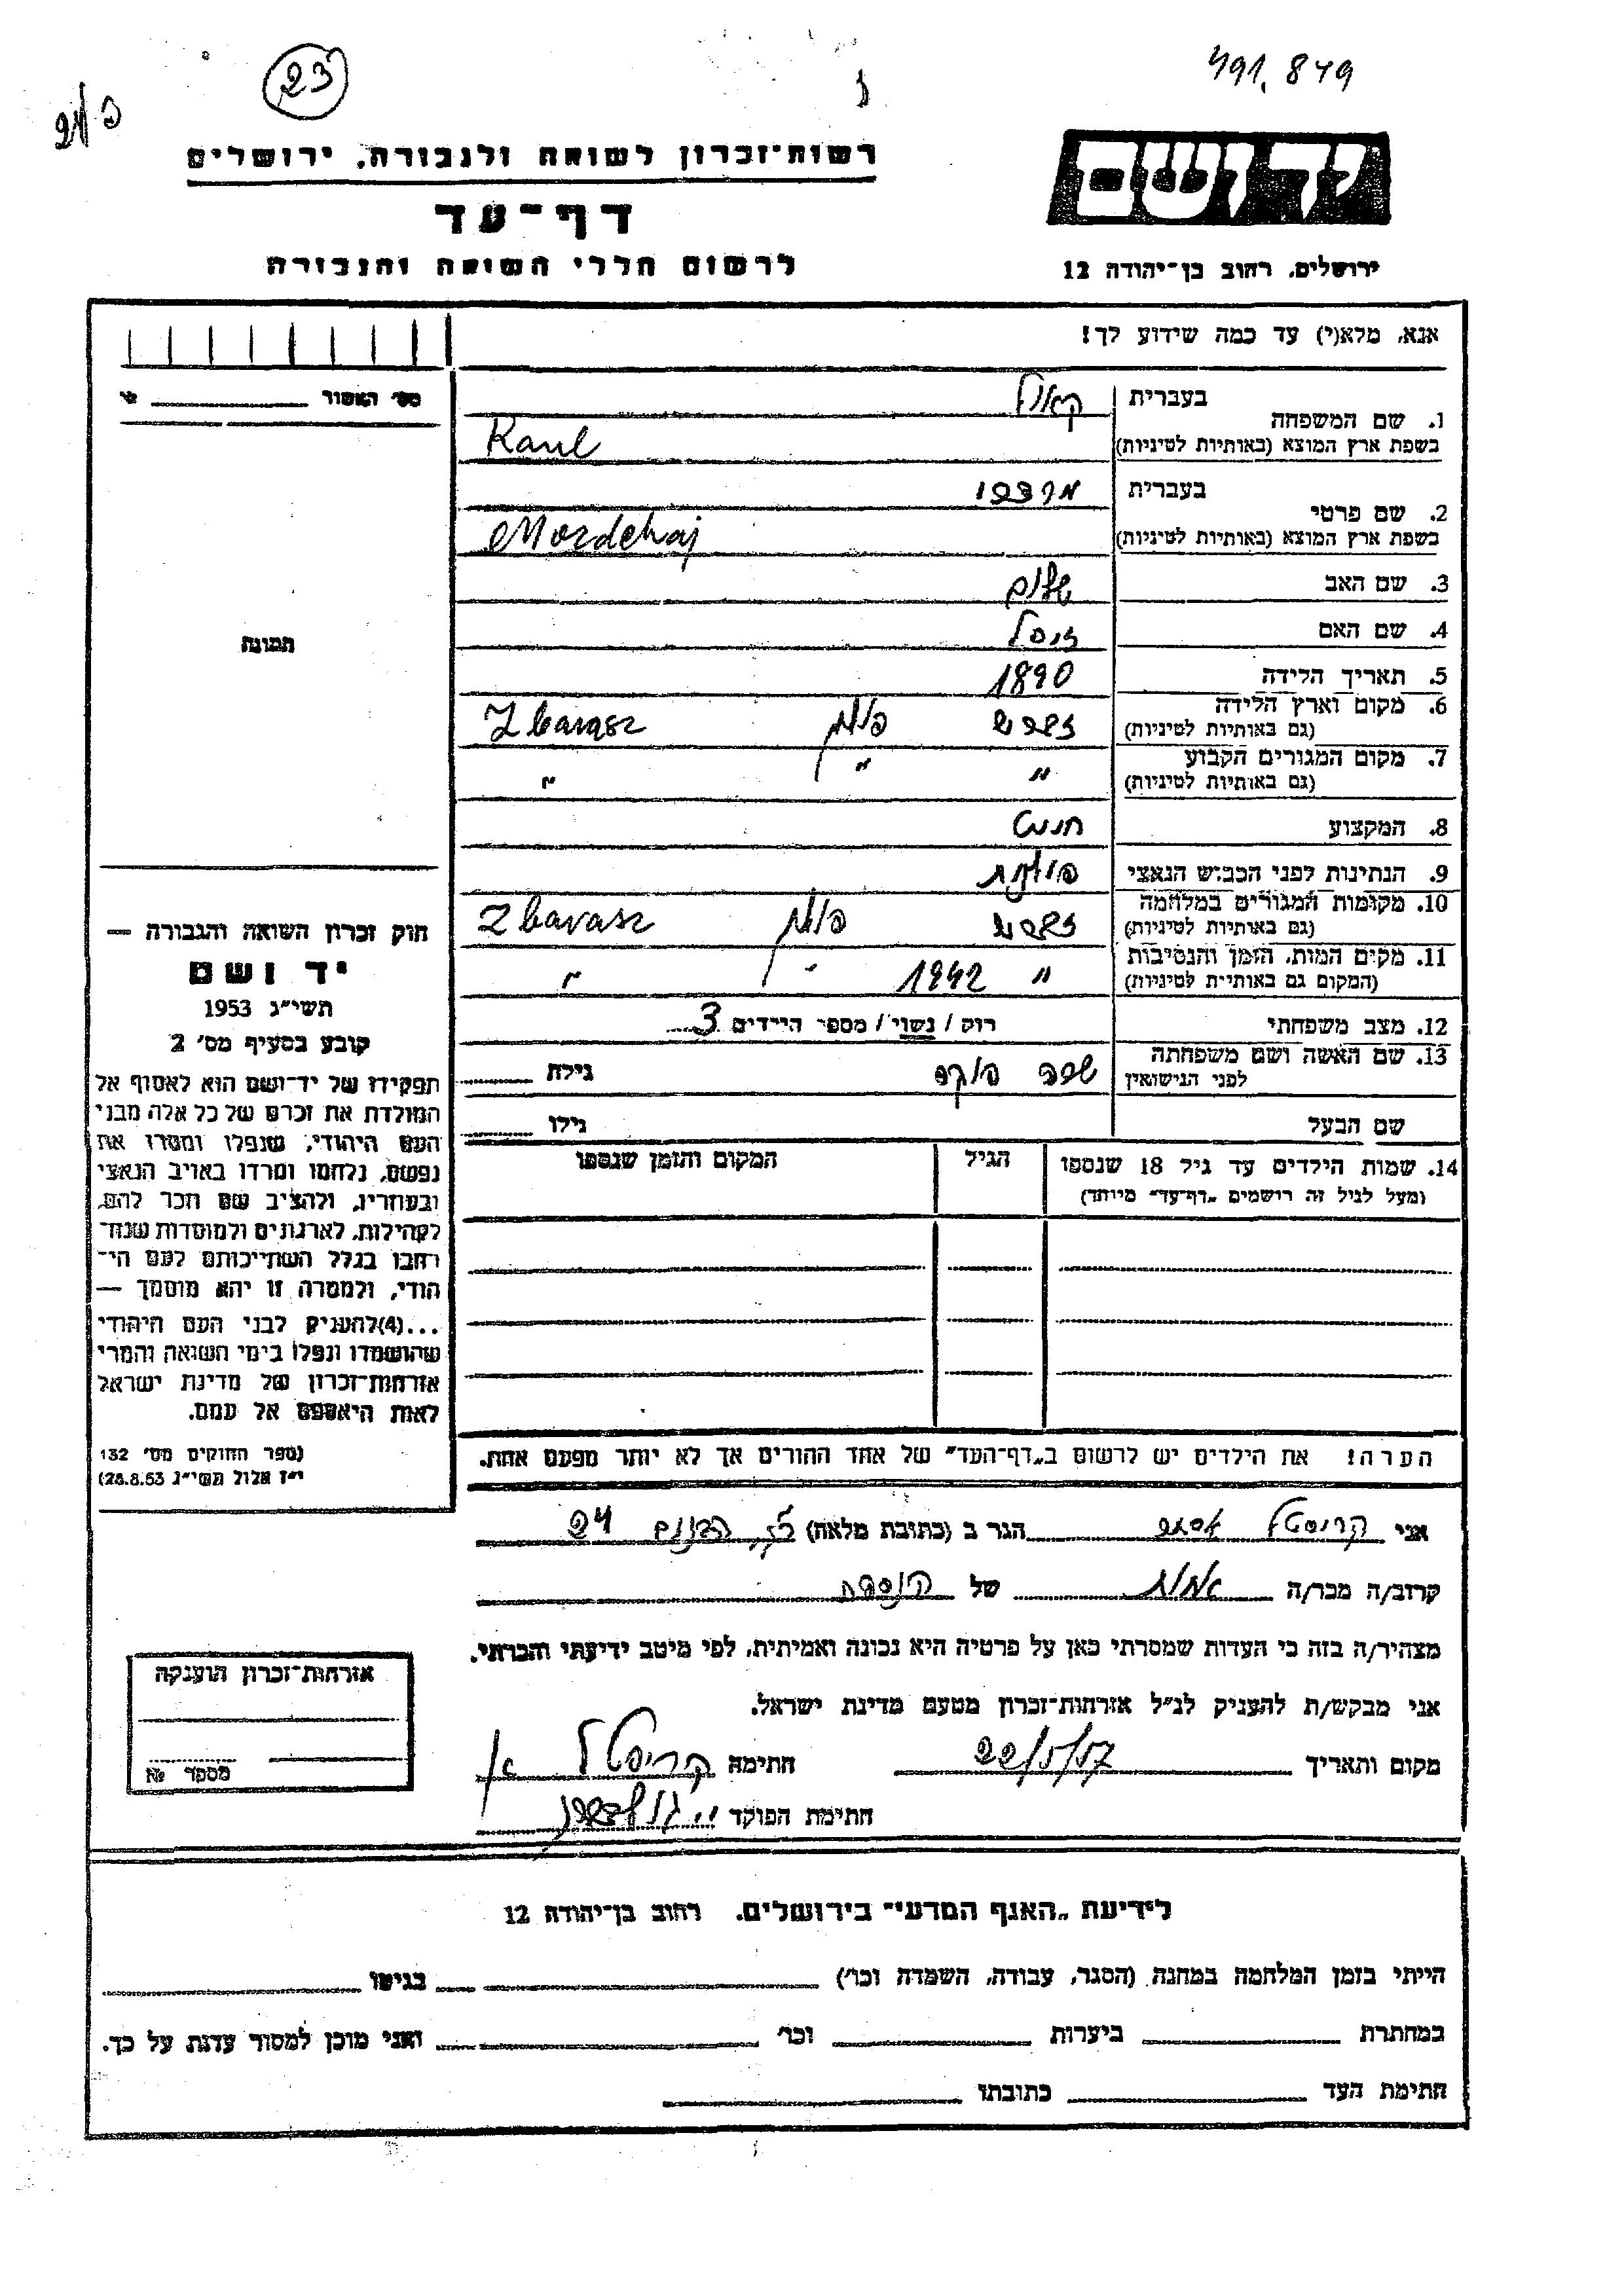 491,849
23
יד ושם
רשות־זכרון לשואה ולגבורה, ירושלים
דף־עד
לרשום חללי השואה והגבורה
ירושלים, רחוב בן־יהודה 12
אנא, מלא(י) עד כמה שידוע לך!
מס׳ האשור
1. שם המשפחה
בעברית קאול
בשפת ארץ המוצא (באותיות לטיניות) Kaul
2. שם פרטי
בעברית מרדכי
בשפת ארץ המוצא (באותיות לטיניות) Mordehaj
3. שם האב שלום
4. שם האם
5. תאריך הלידה 1890
6. מקום וארץ הלידה
(גם באותיות לטיניות) זברש פולין Zbarasz
7. מקום המגורים הקבוע
(גם באותיות לטיניות) " " "
8. המקצוע
9. הנתינות לפני הכבוש הנאצי פולנית
10. מקומות המגורים במלחמה
(גם באותיות לטיניות) פולין Zbarasz
11. מקום המות, הזמן והנסיבות
(המקום גם באותיות לטיניות) " 1942 " "
12. מצב משפחתי רוק / נשוי / מספר הילדים 3
13. שם האשה ושם משפחתה
לפני הנישואין גילה
שם הבעל גילו
14. שמות הילדים עד גיל 18 שנספו הגיל המקום והזמן שנספו
(מעל לגיל זה רישמים „דף־עד״ מיוחד)
הערה! את הילדים יש לרשום ב„דף־העד״ של אחד ההורים אך לא יותר מפעם אחת.
תמונה
חוק זכרון השואה והגבורה —
יד ושם
תשי״ג 1953
קובע בסעיף מס׳ 2
תפקידו של יד־ושם הוא לאסוף אל
המולדת את זכרם של כל אלה מבני
העם היהודי, שנפלו ומסרו את
נפשם, נלחמו ומרדו באויב הנאצי
ובעוזריו, ולהציב שם וזכר להם,
לקהילות, לארגונים ולמוסדות שנח־
רחבו בגלל השתייכותם לעם הי־
הודי, ולמטרה זו יהא מוסמך —
...(4)להעניק לבני העם היהודי
שהושמדו ונפלו בימי השואה והמרי
אזרחות־זכרון של מדינת ישראל
לאות היאספם אל עמם.
(ספר החוקים מס׳ 132
י״ז אלול תשי״ג 28.8.53)
אני קריסטל הגר ב (כתובת מלאה) 24
קרוב/ה מכר/ה אחות של
מצהיר/ה בזה כי העדות שמסרתי כאן על פרטיה היא נכונה ואמיתית, לפי מיטב ידיעתי והכרתי.
אני מבקש/ת להעניק לנ״ל אזרחות־זכרון מטעם מדינת ישראל.
מקום ותאריך 22/5/57 חתימה קריסטל
חתימת הפוקד
אזרחות־זכרון הוענקה
מספר №
לידיעת „האגף המדעי״ בירושלים, רחוב בן־יהודה 12
הייתי בזמן המלחמה במחנה (הסגר, עבודה, השמדה וכו׳) בגיטו
במחתרת ביערות וכו׳ ואני מוכן למסור עדות על כך.
חתימת העד כתובתו